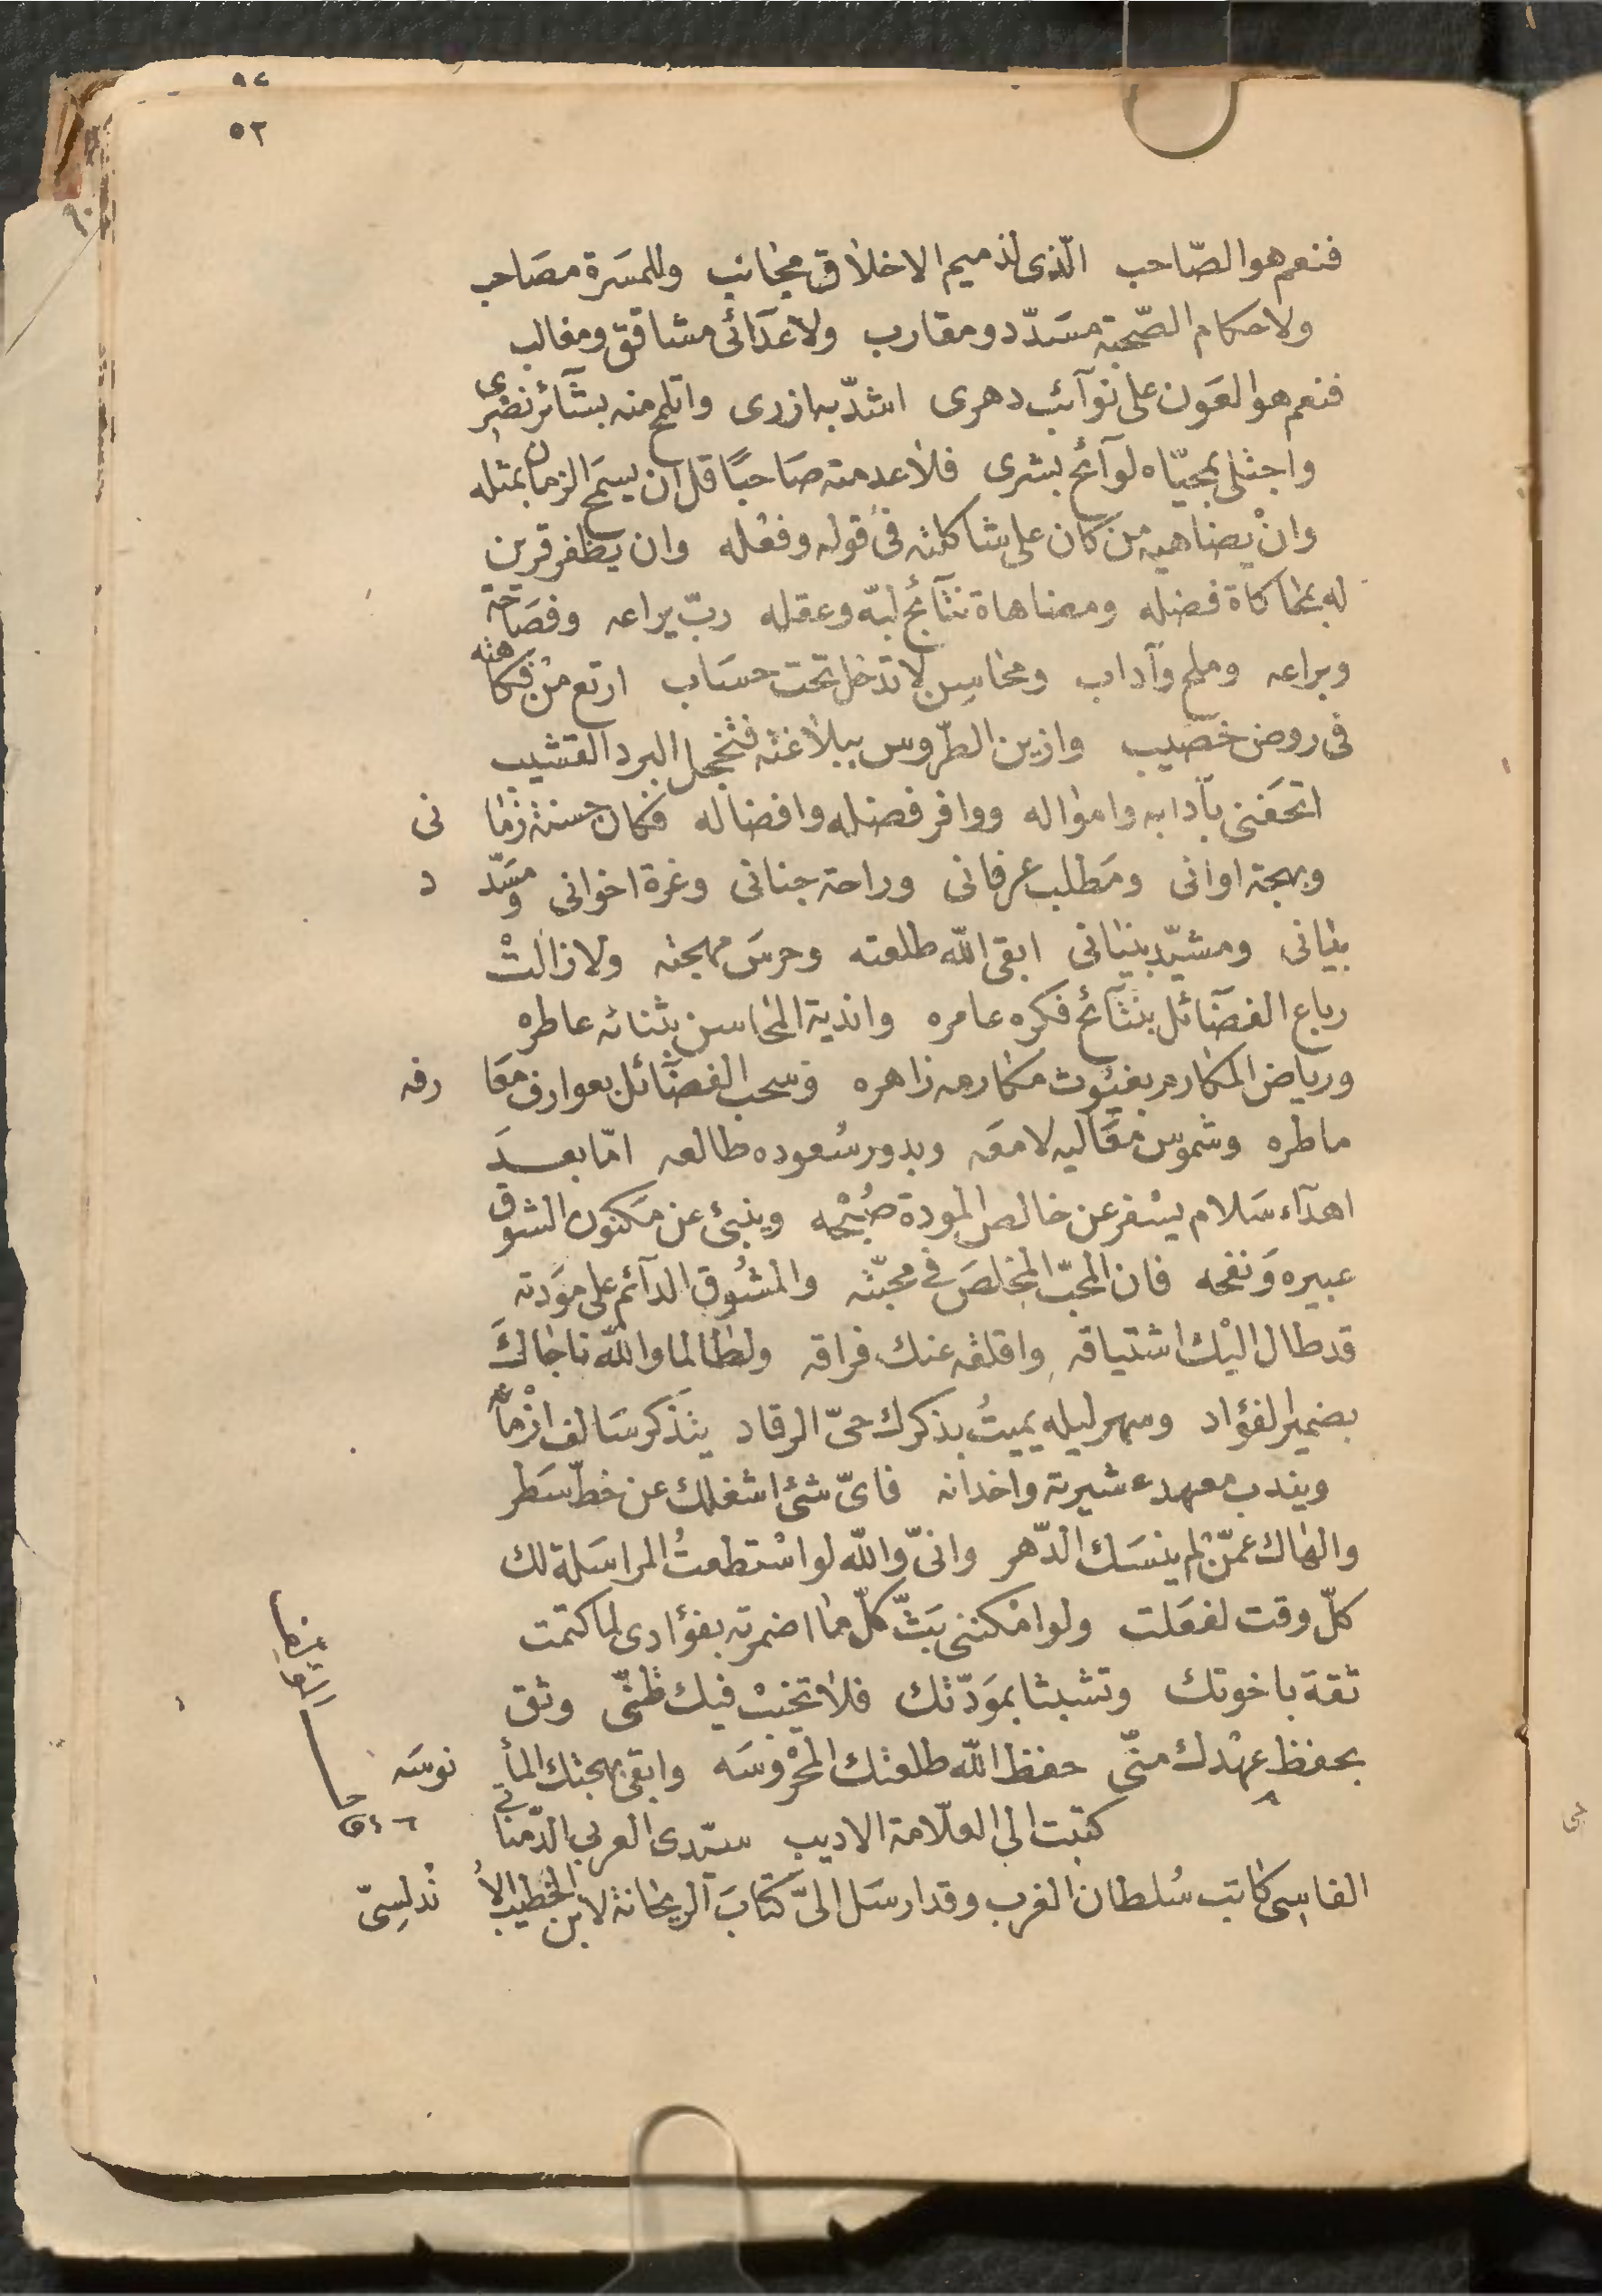 ٩٤
٥٢
فنعم هو الصّاحب الّذى لذميم الاخلاق مجانب وللمسَرة مصَاحب
ولاحكام الصّحبة مسَدّد ومقارب ولاعدَآئى مشاقق ومغالب
فنعم هو العَون على نوآئب دهرى اشدّ به ازرى واتلمّح منه بشآئر نصْرى
واجتلى بمحيّاه لوآئح بشرى فلا عدمته صَاحبًا قل ان يسمَح الزمان بمثله
وانْ يضاهيه من كان على شاكلته فى قوله وفعْله وان يظفر قرين
له بمحاكاة فضله ومضاهاة نتآئج لبّه وعقله ربّ يراعه وفصَاحة
وبراعه وملح وآداب ومحاسِن لا تدخل تحت حسَاب ارتع منْ فكاهته
فى روض خصَيب وازين الطّروس ببلاغته فتخجل البرد القشيب
اتحَفنى بآدابه وامواله ووافر فضله وافضاله فكان حسنة زمانى
وبهجة اوانى ومَطلب عرفانى وراحة جنانى وغرة اخوانى ومسَدّد
بيانى ومشيّد بنيانى ابقى الله طلعته وحرسَ مهجته ولا زالَتْ
رباع الفضَآئل بنتآئج فكره عامره واندية المحاسن بثنائه عاطره
ورياض المكارم بغيُوث مكارمه زاهره وسحب الفضَآئل بعوارف معَارفه
ماطره وشموس معَاليه لامعَه وبدور سُعوده طالعه امّا بعدَ
اهدآء سَلام يسْفر عن خالص المودة صُبْحه وينبئ عن مَكنون الشوق
عبيره وَنفحه فان المحبّ المخلصَ فى محبّته والمشُوق الدآئم على موَدته
قد طال اليْك اشتياقه واقلقه عنك فراقه ولطالما والله ناجاكَ
بضمير الفؤاد وسهر ليله يميتُ بذكرك حىّ الرقاد يتَذكر سَالف ازْمانه
ويندب معهد عشيرته واخدانه فاىّ شئ اشغلك عن خطّ سَطر
والهاك عمّنْ لم ينسَك الدّهر وانىّ والله لو اسْتطعتُ المراسَلة لك
كلّ وقت لفعَلت ولو امْكننى بَثّ كلّ ما اضمرته بفؤادى لما كتمت
ثقة باخوتك وتشبثا بموَدّتك فلا تخيّبْ فيك ظنّى وثق
بحفظ عهْدك منّى حفظ الله طلعتك المحْروسَه وابقى بهجتك المأنوسَه
كتبت الى العلّامة الاديب سيّدى العربى الدّمناتى
الفاسِى كاتب سُلطان الغرب وقد ارسَل الىّ كتَابَ الريحانة لابن الخطيب الأندلسِىّ